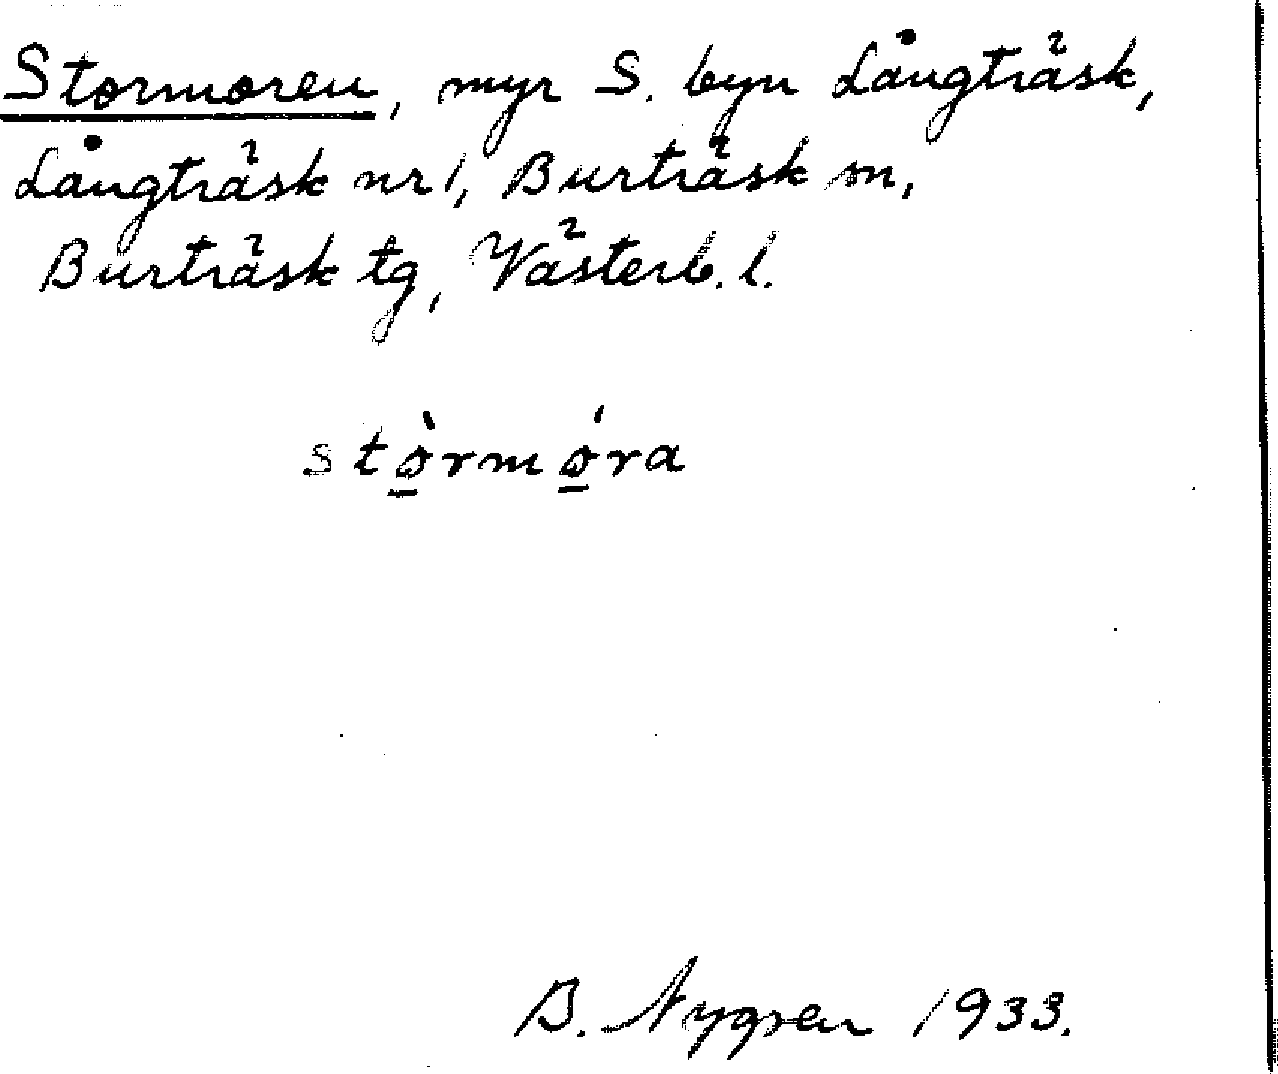 Stormoren, myr S. byn Långträsk,
Långträsk nr 1, Burträsk sn,
Burträsk tg, Västerb. l.
stò̠rmó̠ra
B. Nygren 1933.